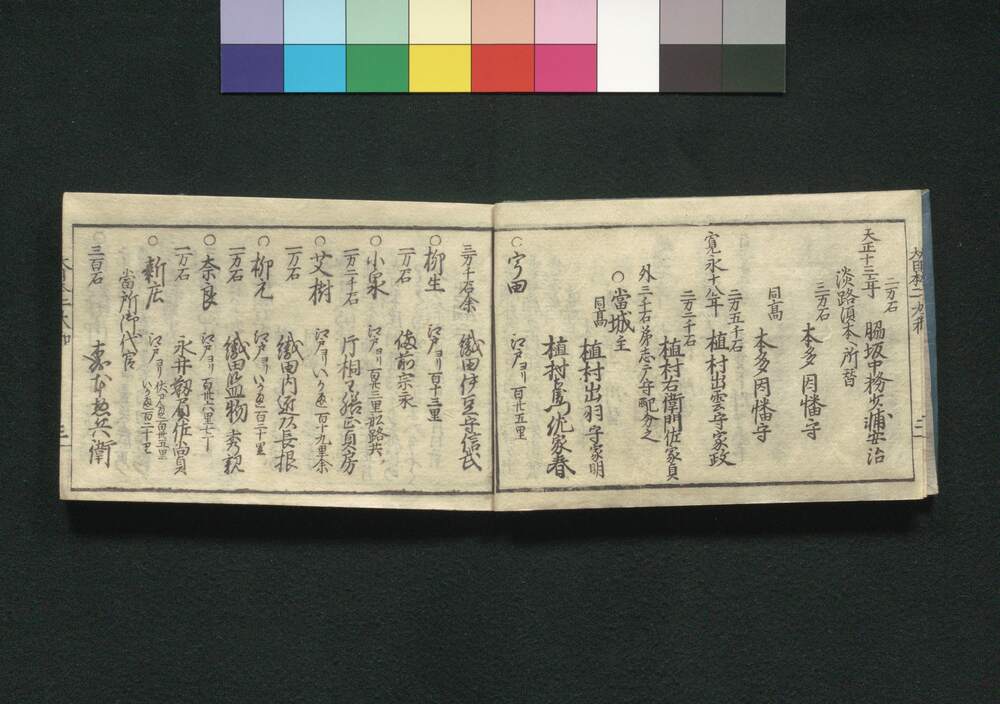 二万石
天正十三年 脇坂中務少輔安治
淡路須本へ所替
三万石
本多因幡守
同高
本多因幡守
寛永十八年 植村出雲守家政
二万五千石
二万二千石
植村右衛門佐家貞
外三千石弟
守配分之
○當城主
植村出羽守家明
同高
植村
家春
○宇田 江戸ヨリ百廿五里
三万千石余 織田伊豆守信武
○柳生 江戸ヨリ百十三里
一万石 備前宗永
○小泉 江戸ヨリ百廿三里
一万二千石 片桐主膳正貞房
○艾樹 江戸ヨリいが越百十九里余
一万石 織田内近
長根
○柳元 江戸ヨリいが越百二十里
一万石 織田監物秀親
○奈良 江戸ヨリ百廿八里
一万石 永井靱負佐尚員
○新庄 江戸ヨリ
百廿五里
いが越百二十里
當所御代官
三百石
兵衛
三